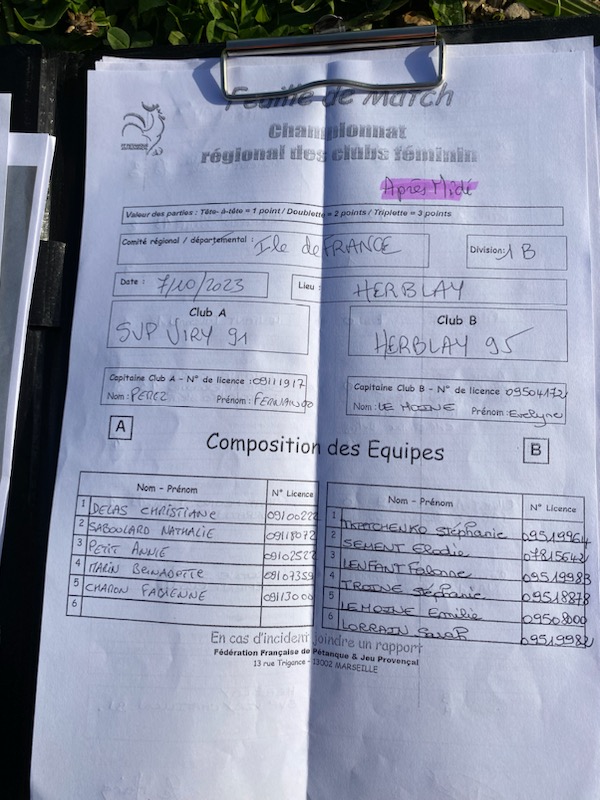 Feuille de Match
Championnat
régional des clubs féminin
Après Midi
Valeur des parties : Tête-à-tête = 1 point / Doublette = 2 points / Triplette = 3 points
Comité régional / départemental : Ile de FRANCE
Division: 1 B
Date : 7/10/2023
Lieu : HERBLAY
Club A
SUP VIRY 91
Club B
HERBLAY 95
Capitaine Club A - N° de licence : 09111917
Nom : PEREZ Prénom : FERNANDO
Capitaine Club B - N° de licence : 09504172
Nom : LE MOINE Prénom : Evelyne
A
Composition des Equipes
B
Nom - Prénom N° Licence
1 DELAS CHRISTIANE 09100222
2 SABOULARD NATHALIE 09118072
3 PETIT ANNIE 09102522
4 MARIN BERNADETTE 09107359
5 CHARON FABIENNE 09113000
6
Nom - Prénom N° Licence
1 TKATCHENKO Stéphanie 09519964
2 SEMENT Elodie 07815642
3 LENFANT Fabienne 09519983
4 TROINE Stéphanie 09518878
5 LEMOINE Emilie 09508000
6 LORRAIN Sarah 09519982
En cas d'incident joindre un rapport
Fédération Française de Pétanque & Jeu Provençal
13 rue Trigance - 13002 MARSEILLE